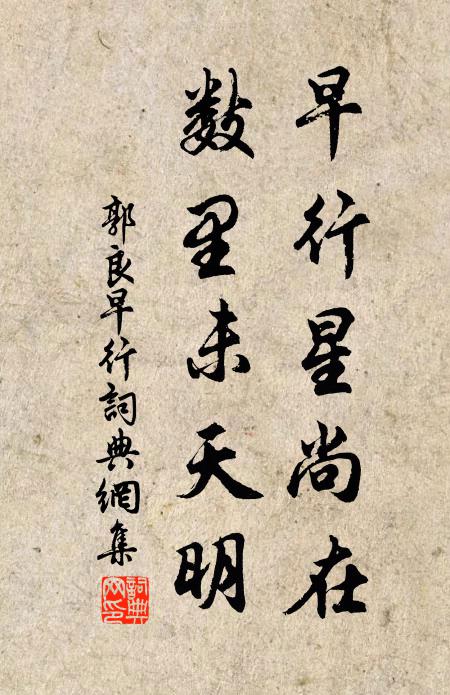 早行星尚在
数里未天明
郭良早行詞典網集
詞典网印